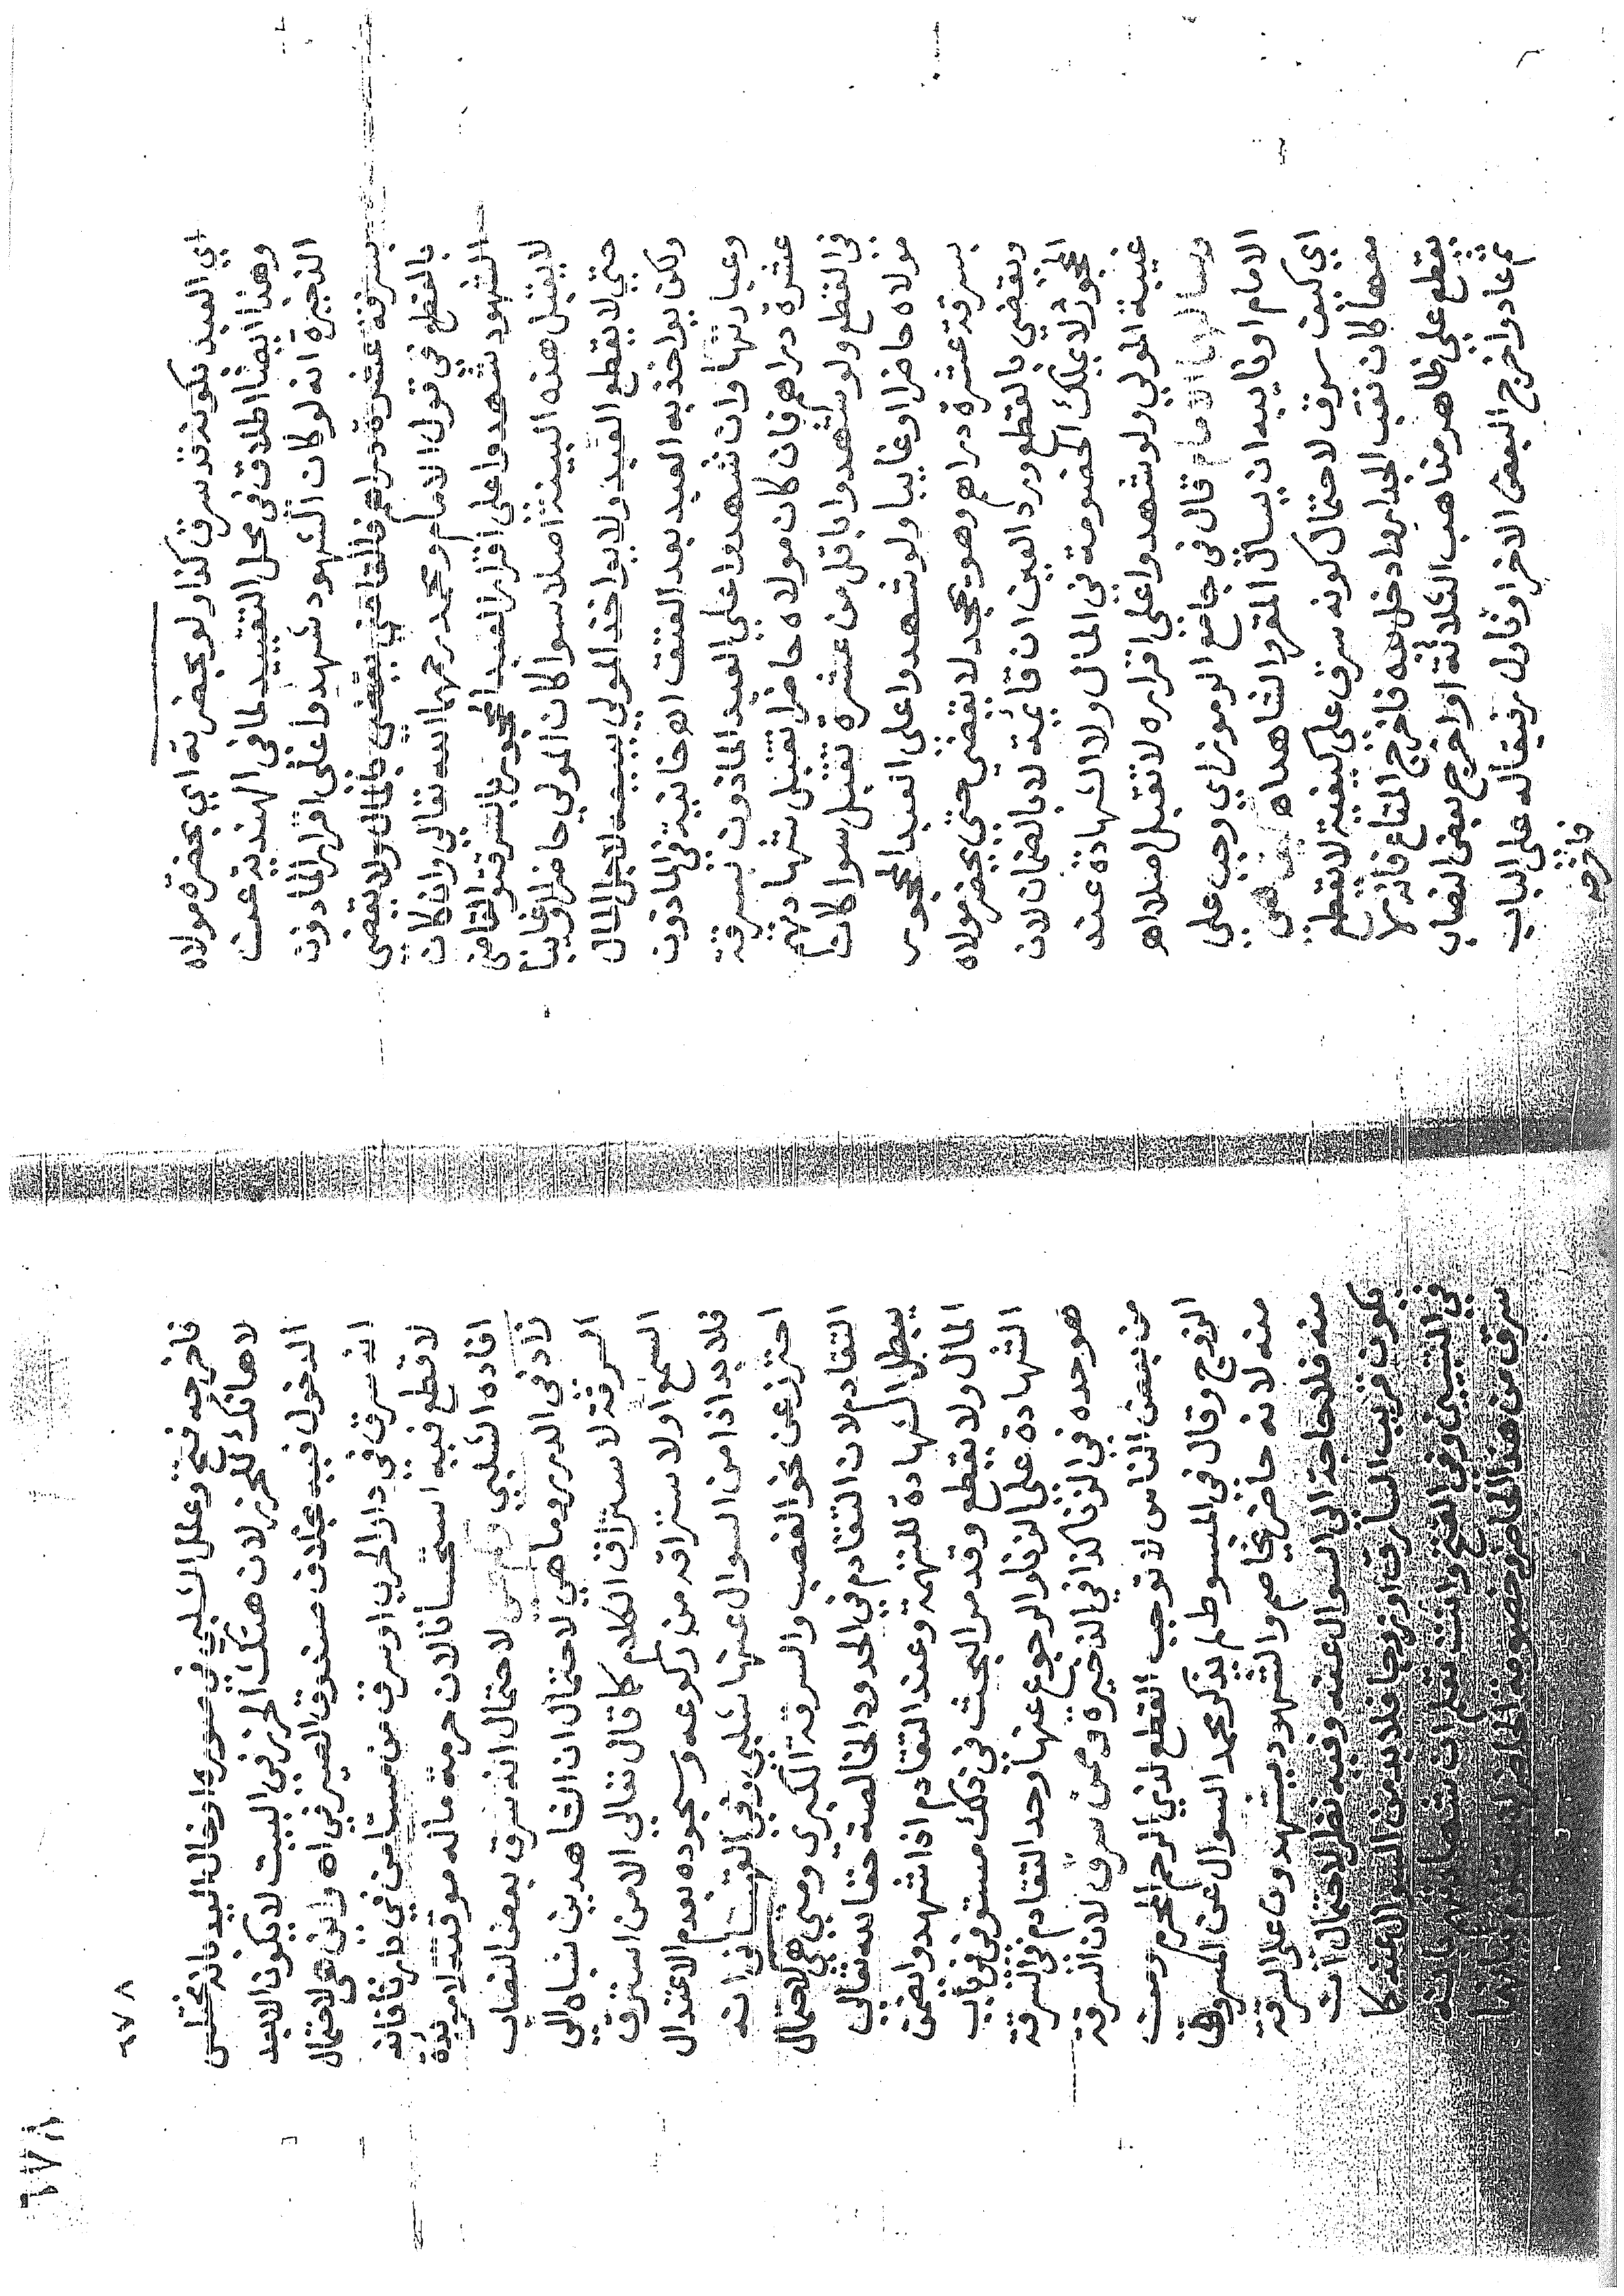 اي العبد بكونه قد سرق كذا ولو بحضرته اي بحضرة مولاه
وهذا ايضا اطلاق في محل التقييد لما في الهندية عن
الذخيرة انه لو كان الشهود شهدوا على اقرار الماذون
بسرقة عشرة دراهم فالقاضي يقضي بالمال ولا يقضي
بالقطع في قول الامام ومحمد رحمهما الله تعالي وان كان
الشهود شهدوا على اقرار العبد المحجور بالسرقة والقاضي
لا يقبل هذه البينة اصلا سوا كان المولي حاضرا او غايبا
حتي لا يقطع العبد ولا يواخذ المولي ببيعه لاجل المال
ولكن يواخذ به العبد بعد العتق اه خانية في الماذون
وعبارتها وان شهدوا علي العبد الماذون بسرقة
عشرة دراهم فان كان مولاه حاضرا تقبل شهادتهم
في القطع ولو شهدوا باقل من عشرة تقبل سوا كان
مولاه حاضرا او غايبا ولو شهدوا على العبد المحجور
بسرقة عشرة دراهم وهو يجحد لا يقضي حتي يحضر مولاه
ويقضي بالقطع ورد العين ان قايمة لا بالضمان لان
المحجور لا يملك الخصومة في المال ولا الشهادة عند
غيبة المولي ولو شهدوا علي اقراره لا تقبل اصلا اه
وسالهما الامام قال في جامع الرموز اي وجب على
الامام او نايبه ان يسال المقر والشاهد اه كيف هي
اي كيف سرق لاحتمال كونه سرق على كيفية لا يقطع
معها كان نقب الجدار وادخل يده فاخرج المتاع فانه لا
يقطع علي ظاهر مذاهب الثلاثة او اخرج بعض النصاب
ثم عاد واخرج البعض الاخر او ناول رفيقا له على الباب
فاخرجه
٦٧٨
٦٧٨
فاخرجه فتح وعلل الشلبي في صورة ادخال اليد بانه مختلس
لا هاتك للحرز لان هتك الحرز في البيت لا يكون الا بيد
الدخول فيه بخلاف صندوق الصيرفي اه واين هي لاحتمال
انه سرق في دار الحرب او سرق من مستامن في دارنا فانه
لا قطع فيه استحسانا لان حرمة ماله موقتة لا موبدة
افاده الشلبي وكم هي لاحتمال انه سرق بعض النصاب
زاد في الدرر وما هي لاحتمال ان الشاهدين نسباه الي
السرقة لاستراق الكلام كما قال تعالى الا من استرق
السمع او لاستراقه من ركوعه وسجوده بعدم الاعتدال
فلا بد اذا من السوال عنها شلبي وفي القهستاني انه
احترز عن نحو الغصب والسرقة الكبرى ومتي هي لاحتمال
التقادم لان التقادم في الحدود الخالصة حقا لله تعالى
يبطل الشهادة للتهمة وعند التقادم اذا شهدوا يضمن
المال ولا يقطع وقد مر البحث في ذلك مستوفي في باب
الشهادة على الزنا والرجوع عنها وحد التقادم في السرقة
هو حده في الزنا كذا في الذخيرة وممن سرق لان السرقة
من بعض الناس لا توجب القطع لذي الرحم المحرم ومن
الزوج وقال في المبسوط لم يذكر محمد السوال عن المسروق
منه لانه حاضر يخاصم والشهود يشهدون على السرقة
منه فلا حاجة الى السوال عنه وفيه نظر لاحتمال ان
يكون قريب السارق او زوجا فلا بد من السوال عنه كما
في التبيين وفي الفتح وانت تعلم ان شهادتهم بانه
سرق من هذا الحاضر وخصومة الحاضر